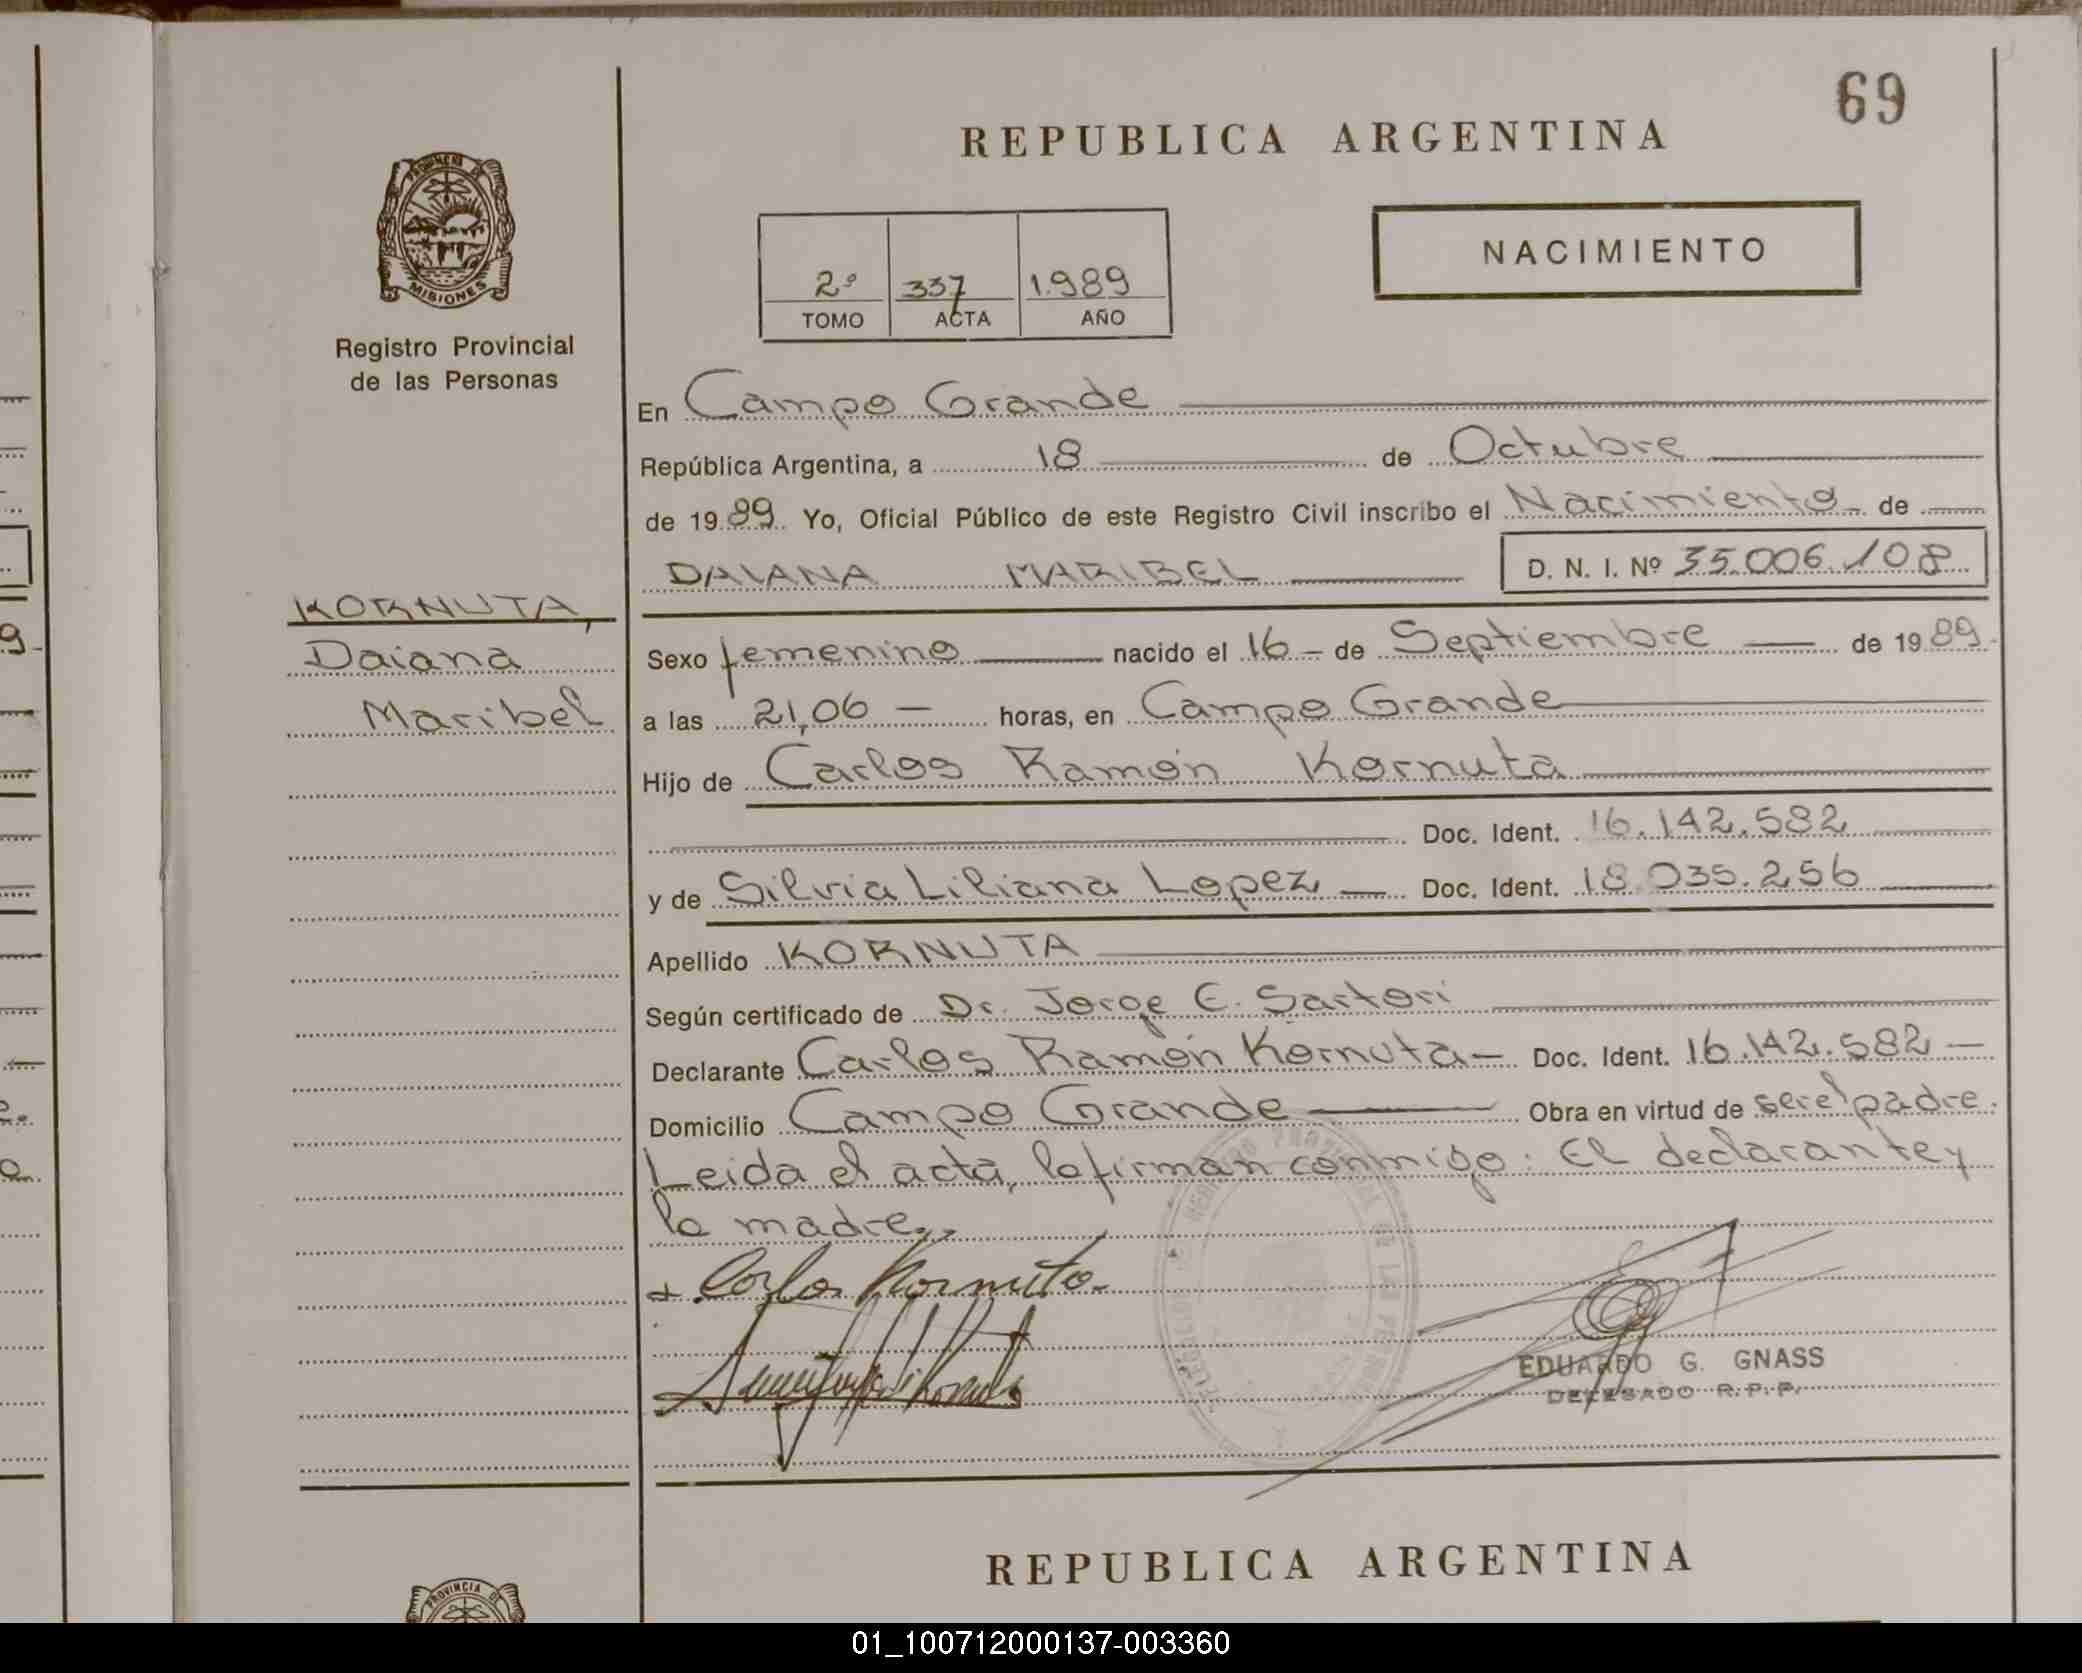 69
REPUBLICA ARGENTINA
NACIMIENTO
PROVINCIA DE
MISIONES
Registro Provincial
de las Personas
2º 337 1.989
TOMO ACTA AÑO
En Campo Grande
República Argentina, a 18 de Octubre
de 1989. Yo, Oficial Público de este Registro Civil inscribo el Nacimiento de
DAIANA MARIBEL D. N. I. Nº 35.006.108
KORNUTA,
Daiana
Maribel
Sexo femenino nacido el 16 de Septiembre de 1989
a las 21,06 horas, en Campo Grande
Hijo de Carlos Ramón Kornuta
Doc. Ident. 16.142.582
y de Silvia Liliana Lopez Doc. Ident. 18.035.256
Apellido KORNUTA
Según certificado de Dr. Jorge E. Sartori
Declarante Carlos Ramón Kornuta Doc. Ident. 16.142.582
Domicilio Campo Grande Obra en virtud de ser el padre.
Leida el acta, la firman conmigo: El declarante y
la madre.
Carlos Kornuta
EDUARDO G. GNASS
DELEGADO R.P.P.
REPUBLICA ARGENTINA
PROVINCIA DE
01_100712000137-003360